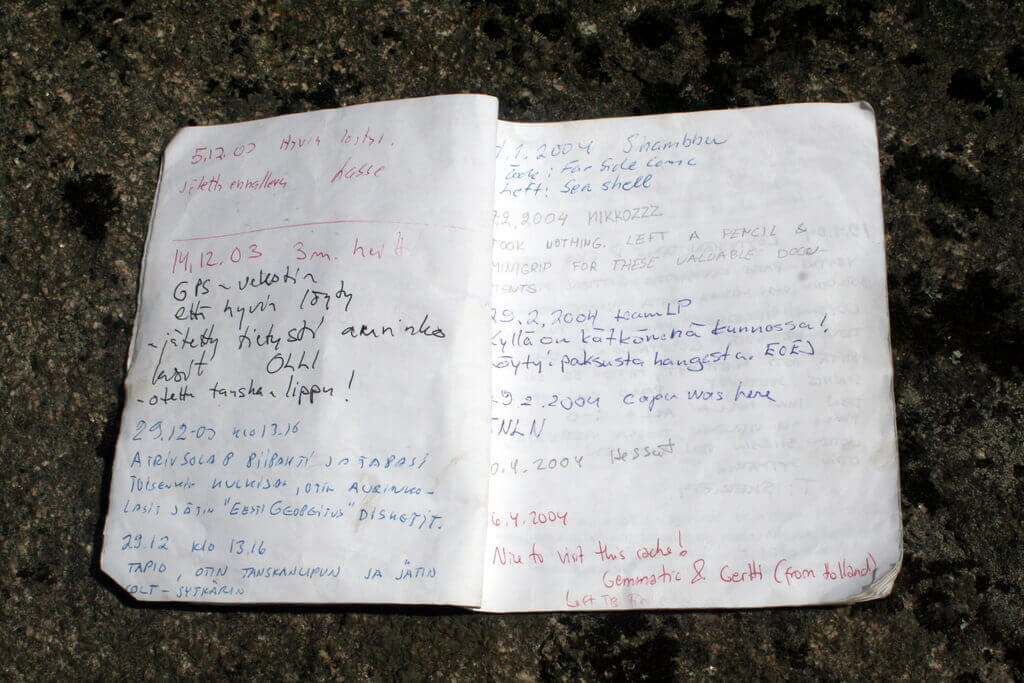 5.12.03 Hyvin löytyi.
jätettiin ennalleen Lasse
14.12.03 3m. heitt
GPS - vekotin
että hyvin löyty
- jätetty tietysti aurinko
lasit OLLI
- otettu tanskan lippu!
29.12-03 klo 13.16
PIIPAHTI JA TAPASI
TOISENKIN KULKIJAN, OTIN AURINKO-
LASIT JÄTIN "EESTI GEOPEITUS" DISKETIT.
29.12 klo 13.16
TAPIO, OTIN TANSKANLIPUN JA JÄTIN
COLT-SYTKÄRIN
1.2004 Shambhu
Took: Far Side Comic
Left: Sea shell
.2.2004 NIKKOZZZ
TOOK NOTHING. LEFT A PENCIL &
MINIGRIP FOR THESE VALUABLE DOCU-
MENTS
29.2.2004 teamLP
Kyllä on kätkönenä kunnossa!
Löytyi paksusta hangesta. EOEJ
29.2.2004 capu was here
TNLN
0.4.2004 Hessut
6.4.2004
Nice to visit this cache!
Gemmatic & Gertti (from Holland)
Left TB